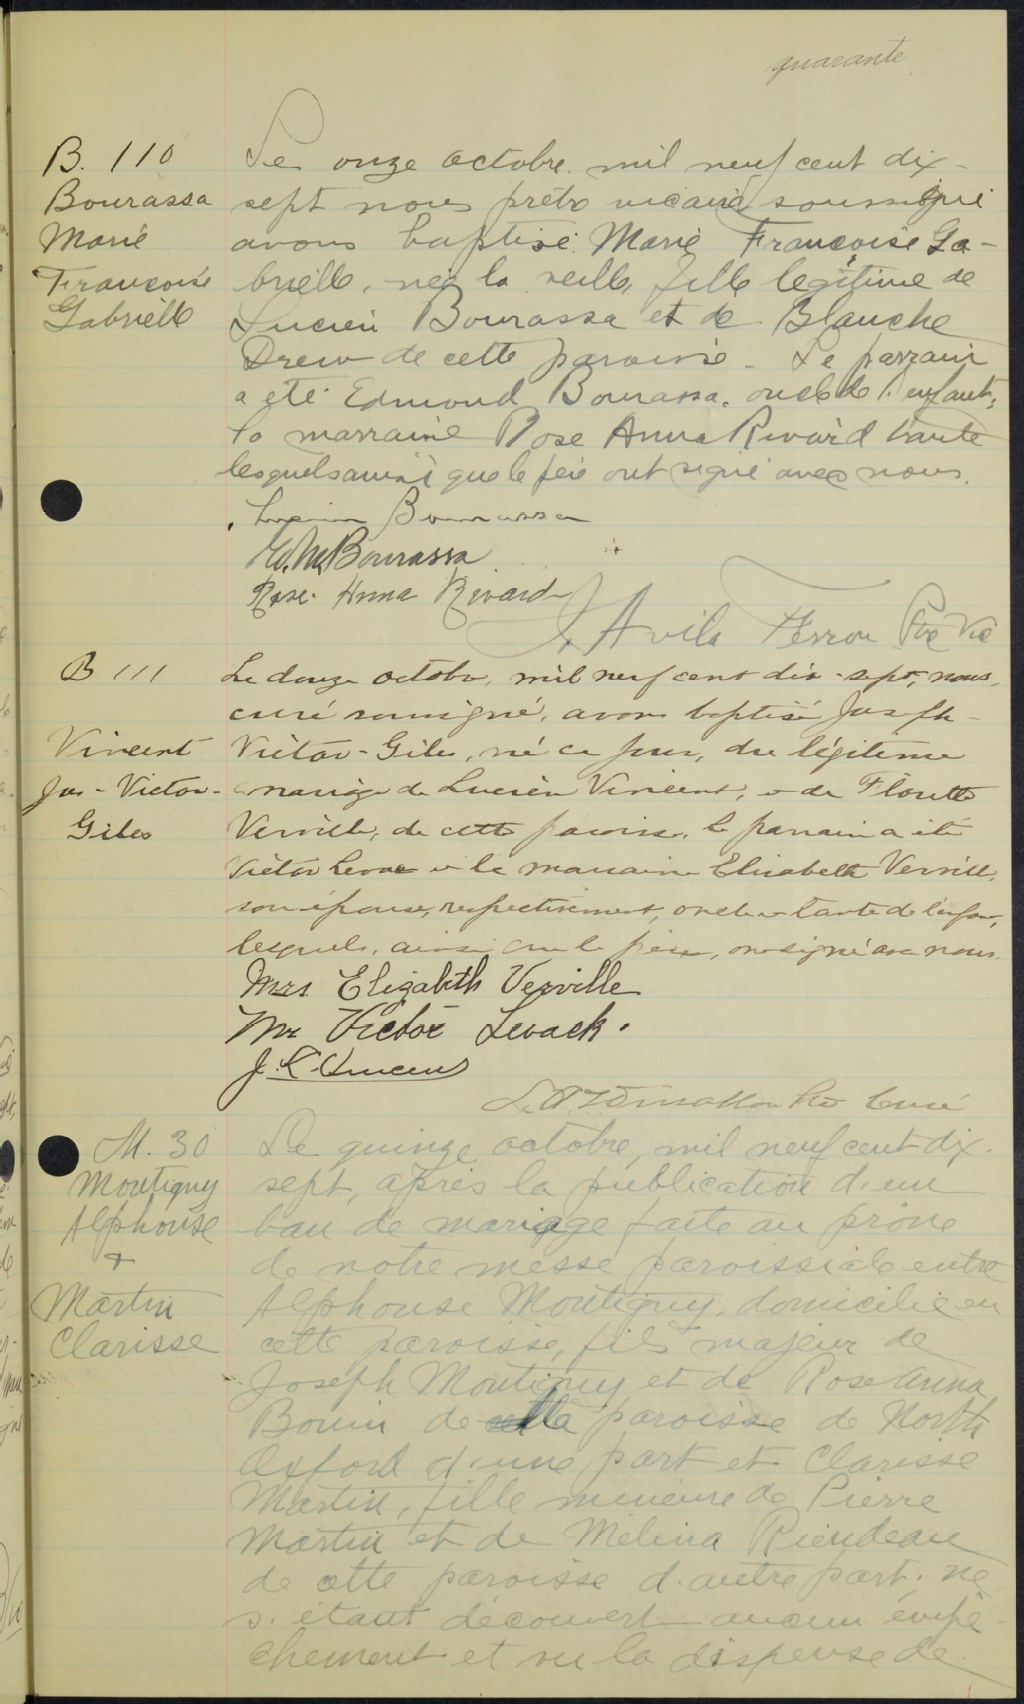 quarante
B. 110
Bourassa
Marie
Françoise
Gabrielle
Le onze octobre mil neuf cent dix-
sept nous prêtre vicaire soussigné
avons baptisé Marie Françoise Ga-
brielle, née la veille, fille légitime de
Lucien Bourassa et de Blanche
Drew de cette paroisse. Le parrain
a été Edmond Bourassa, oncle de l'enfant,
la marraine Rose Anna Rivard tante
lesquels ainsi que le père ont signé avec nous.
Lucien Bourassa
Bourassa
Rose-Anna Rivard
J. Avila Ferron Ptre Vic
B 111
Vincent
Jos-Victor-
Giles
Le douze octobre, mil neuf cent dix-sept, nous,
curé soussigné, avons baptisé Joseph-
Victor-Giles, né ce jour, du légitime
mariage de Lucien Vincent, et de Florette
Verville, de cette paroisse, le parrain a été
Victor Levac et la marraine Elisabeth Verville,
son épouse, respectivement, oncle et tante de l'enfant,
lesquels, ainsi que le père, ont signé avec nous.
Mrs Elizabeth Verville
Mr Victor Levack.
J. L. Vincent
Ptre Curé
M. 30
Montigny
Alphonse
+
Martin
Clarisse
Le quinze octobre, mil neuf cent dix-
sept, après la publication d'un
ban de mariage faite au prône
de notre messe paroissiale entre
Alphonse Montigny, domicilié en
cette paroisse, fils majeur de
Joseph Montigny et de Rose Anna
Bouin de la paroisse de North
Oxford d'une part et Clarisse
Martin, fille mineure de Pierre
Martin et de Mélina Riendeau
de cette paroisse d'autre part; ne
s'étant découvert aucun empê-
chement et vu la dispense de